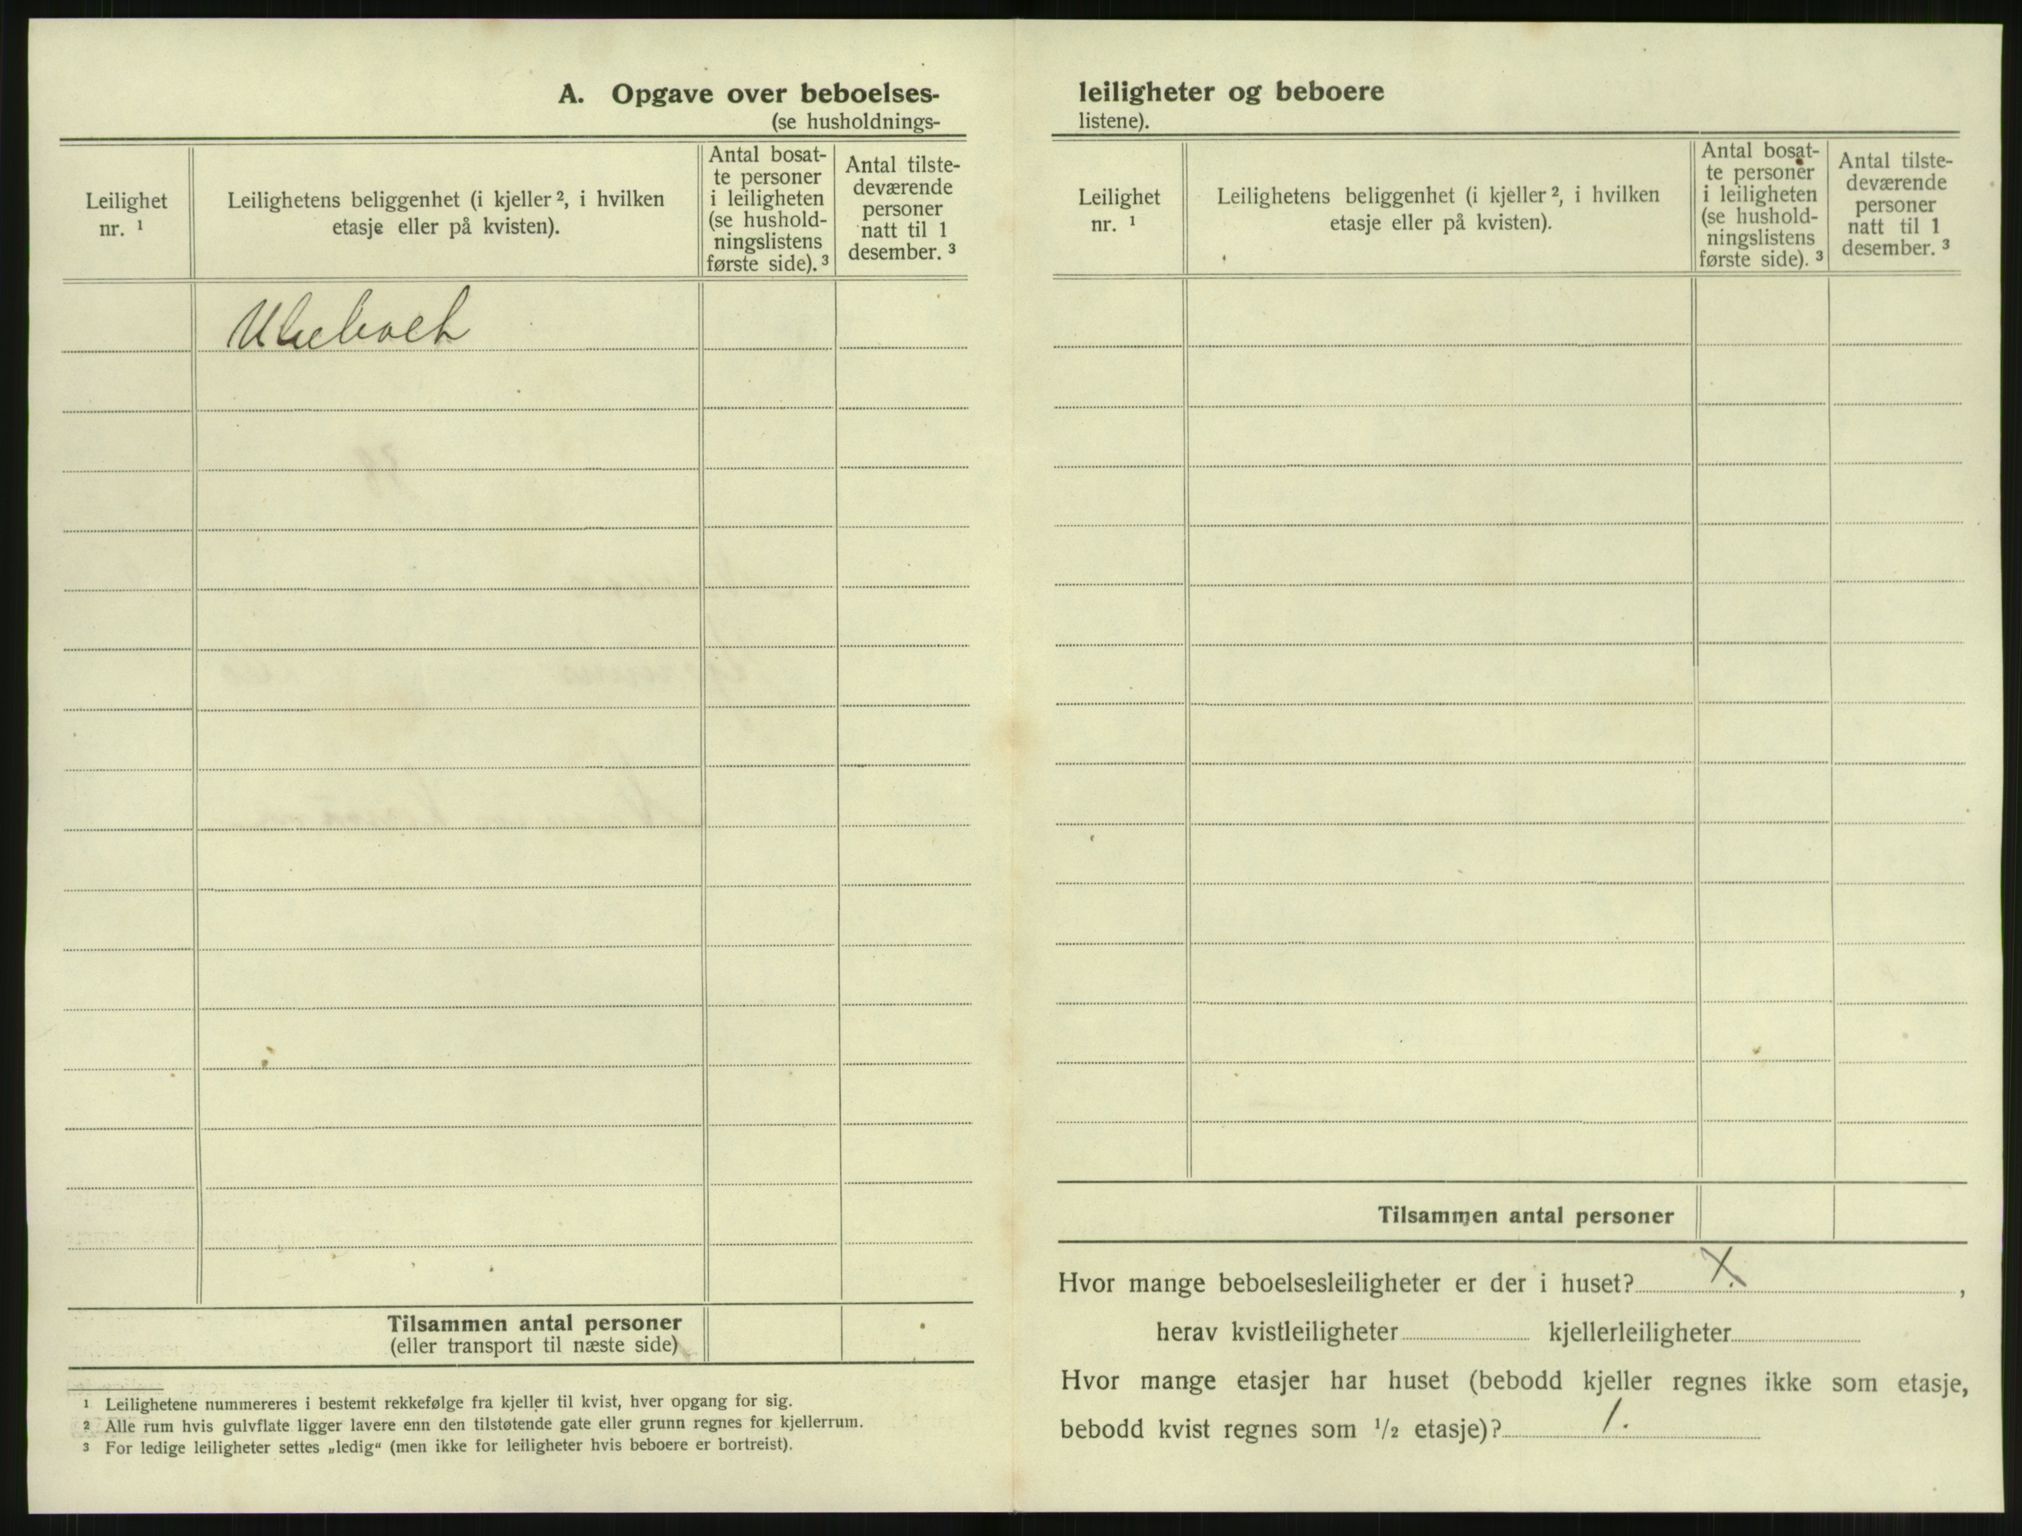 A. Opgave over beboelses-
(se husholdnings-
Leilighet
nr. ¹
Leilighetens beliggenhet (i kjeller ², i hvilken
etasje eller på kvisten).
Antal bosat-
te personer
i leiligheten
(se hushold-
ningslistens
første side). ³
Antal tilste-
deværende
personer
natt til 1
desember. ³
Ubeboet
Tilsammen antal personer
(eller transport til næste side)
¹ Leilighetene nummereres i bestemt rekkefølge fra kjeller til kvist, hver opgang for sig.
² Alle rum hvis gulvflate ligger lavere enn den tilstøtende gate eller grunn regnes for kjellerrum.
³ For ledige leiligheter settes „ledig“ (men ikke for leiligheter hvis beboere er bortreist).
leiligheter og beboere
listene).
Leilighet
nr. ¹
Leilighetens beliggenhet (i kjeller ², i hvilken
etasje eller på kvisten).
Antal bosat-
te personer
i leiligheten
(se hushold-
ningslistens
første side). ³
Antal tilste-
deværende
personer
natt til 1
desember. ³
Tilsammen antal personer
Hvor mange beboelsesleiligheter er der i huset? X. ,
herav kvistleiligheter kjellerleiligheter
Hvor mange etasjer har huset (bebodd kjeller regnes ikke som etasje,
bebodd kvist regnes som ½ etasje)? 1.